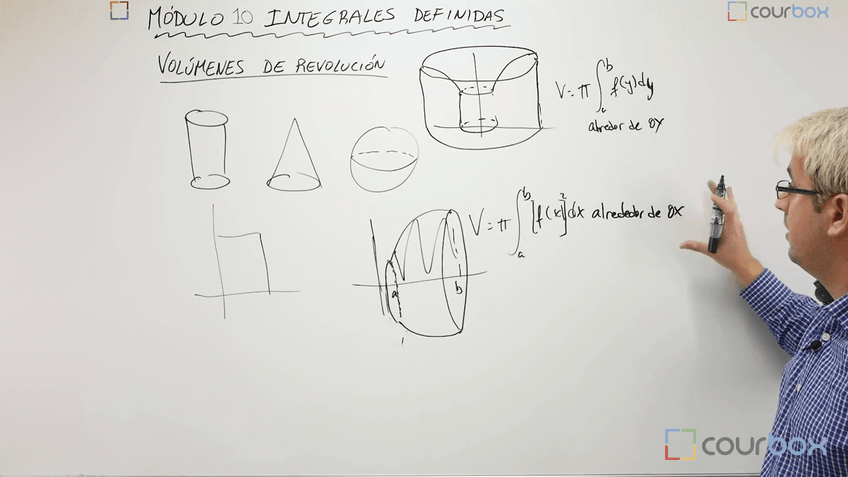 MÓDULO 10 INTEGRALES DEFINIDAS
courbox
VOLÚMENES DE REVOLUCIÓN
V = π ∫ₐᵇ f(y)dy
alrededor de OX
V = π ∫ₐᵇ [f(x)]² dx alrededor de OX
a b
courbox